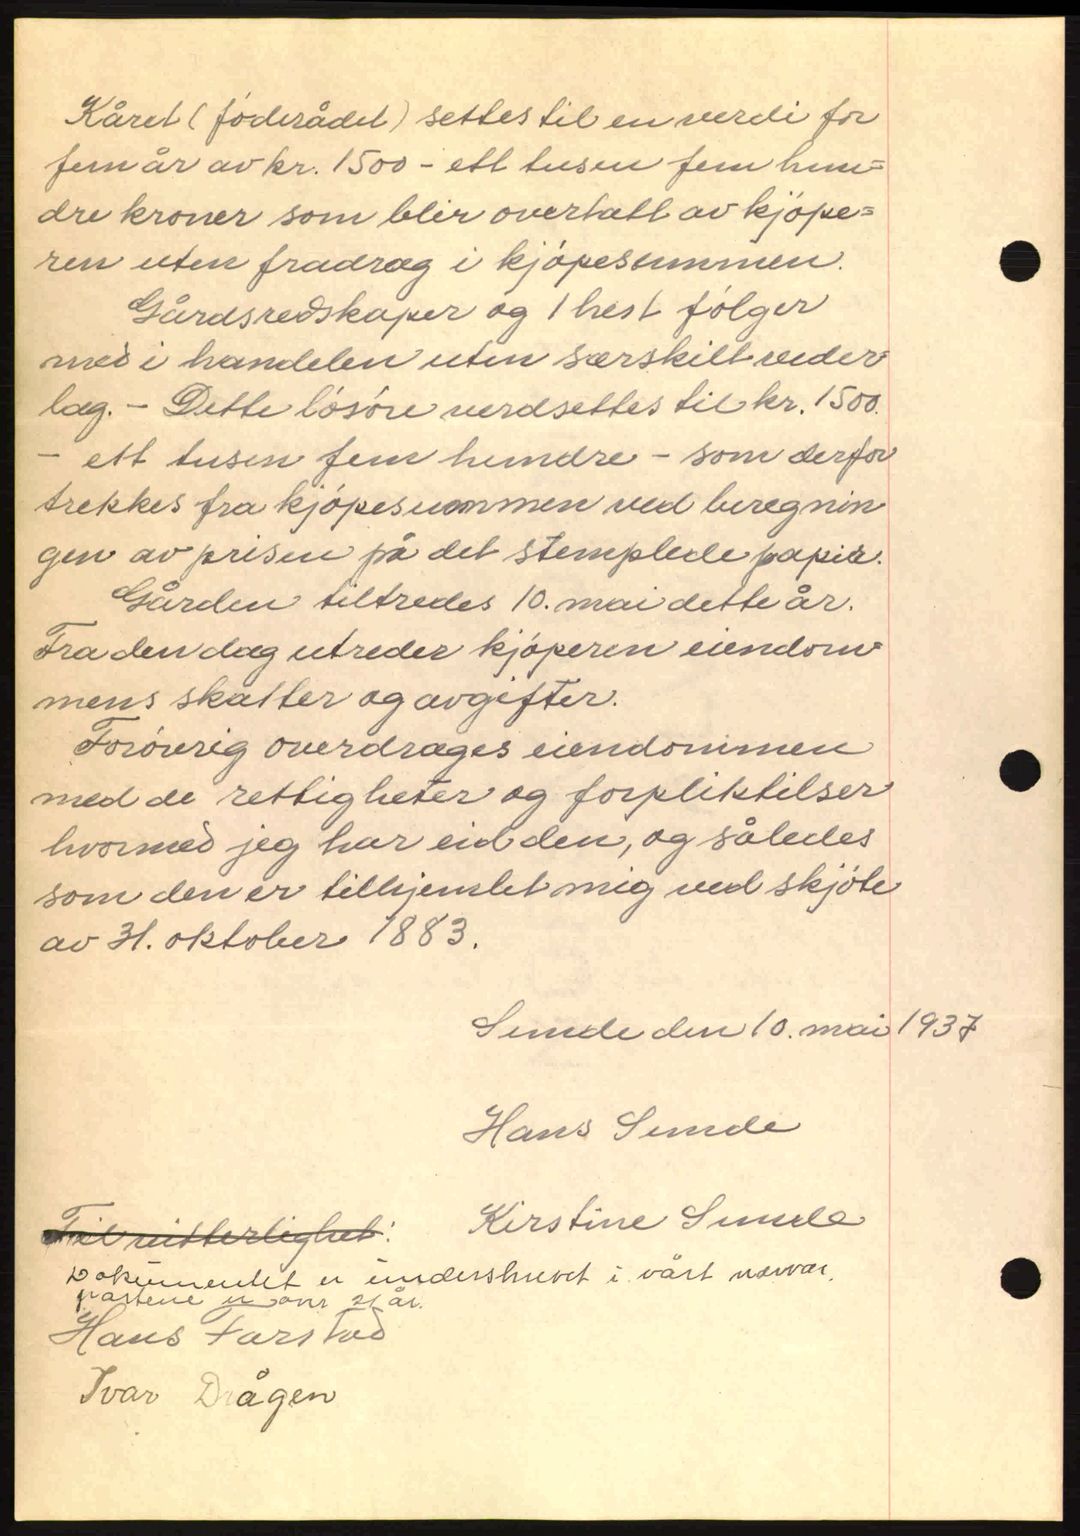 Kåret (föderådet) settes til en verdi for
fem år av kr. 1500 - ett tusen fem hun=
dre kroner som blir overtatt av kjöpe=
ren uten fradrag i kjöpesummen.
Gårdsredskaper og 1 hest fölger
med i handelen uten særskilt veder-
lag. - Dette lösöre verdsettes til kr. 1500.
- ett tusen fem hundre - som derfor
trekkes fra kjöpesummen ved beregnin
gen av prisen på det stemplede papir.
Gården tiltredes 10. mai dette år.
Fra den dag utreder kjöperen eiendom-
mens skatter og avgifter.
Foröverig overdrages eiendommen
med de rettigheter og forpliktilser
hvormed jeg har eid den, og således
som den er tilhjemlet mig ved skjöte
av 31. oktober 1883.
Sunde den 10. mai 1937
Hans Sunde
Kirstine Sunde
Til vitterlighet:
Dokumentet er underskrevet i vårt nærvær.
partene er over 21 år.
Hans Farstad
Ivar Drågen